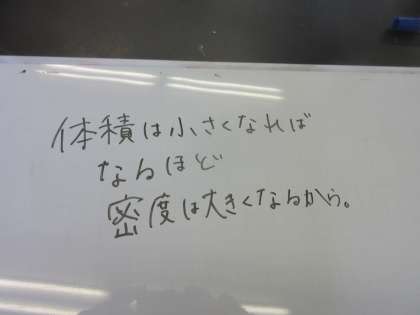 体積は小さくなれば
なるほど
密度は大きくなるから。